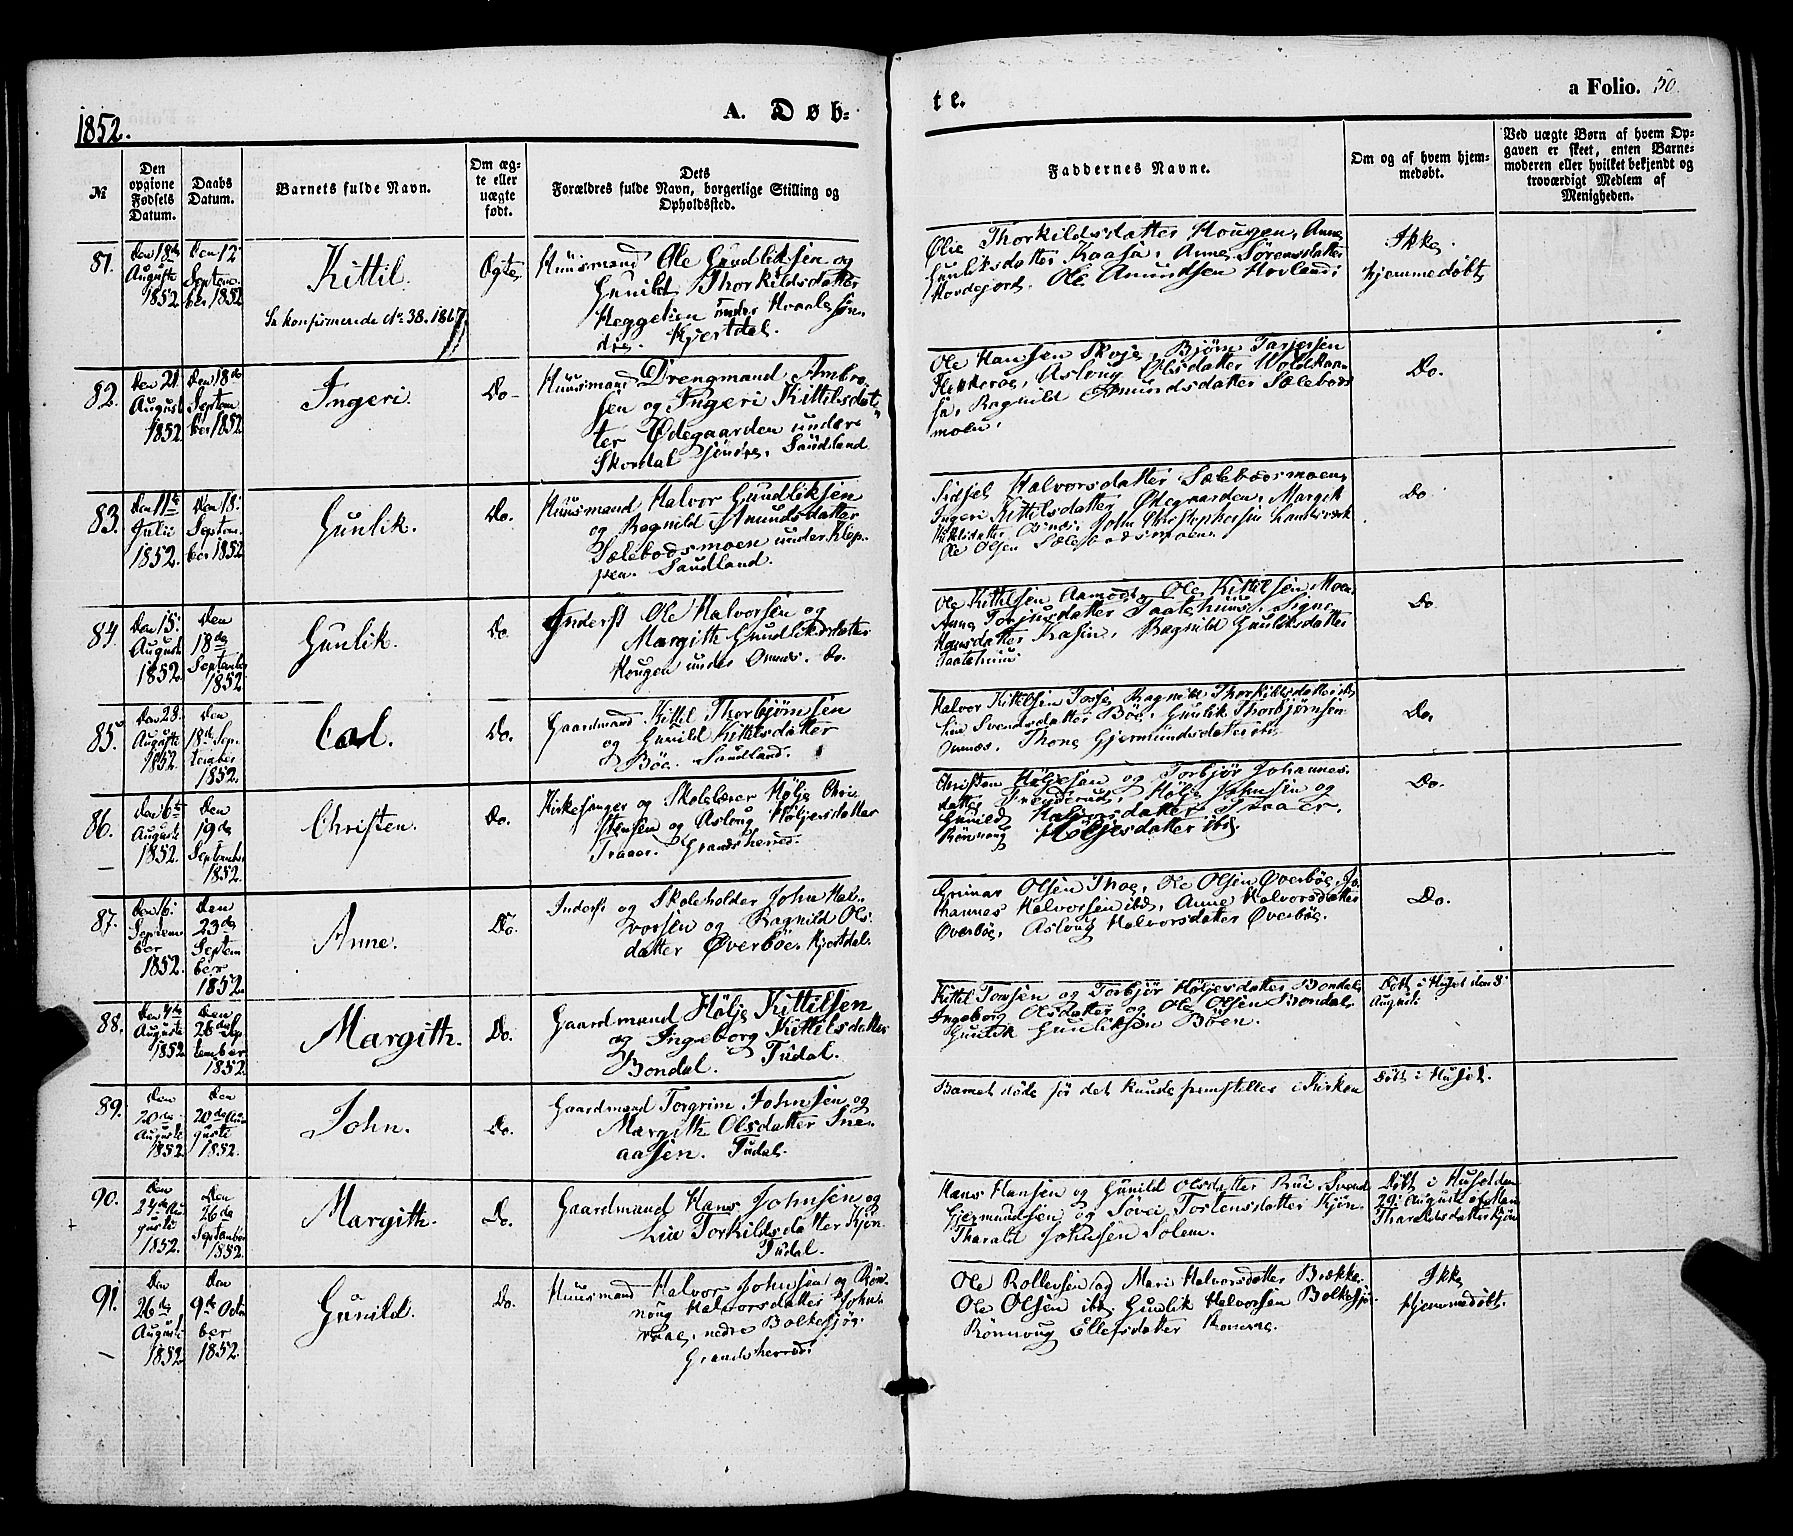 1852.
A. Døb-
te.
a Folio. 50.
№
Den opgivne Fødsels Datum.
Daabs Datum.
Barnets fulde Navn.
Om ægte eller uægte født.
Dets Forældres fulde Navn, borgerlige Stilling og Opholdssted.
Faddernes Navne.
Om og af hvem hjemmedøbt.
Ved uægte Børn af hvem Opgaven er skeet, enten Barnemoderen eller hvilket bekjendt og troværdigt Medlem af Menigheden.
81.
Den 18de
Auguste
1852
Den 12
Septem-
ber 1852
Kittil.
Se konfirmerede No 38. 1867
Ægte
Huusmand Ole Gundliksen og
Gunild Thorkildsdatter
Heggelien under Hvaale søn-
dre. Hjertdal.
Thorkildsdatter Hougen, Anne
Gunliksdatter Kaasa, Anne Sörensdatter
Hovdejord, Ole Amundsen Hovland
Ikke
hjemmedøbt
82.
Den 21
August
1852
Den 18de
Septem
ber 1852
Ingeri.
Do.
Huusmand Drengmand Ambro-
sen og Ingeri Kittilsdat-
ter Ødegaarden under
Skordal søndre, Saudland
Ole Hansen Skoje, Bjørn Tarjersen
Asloug Olsdatter
Ragnild Amundsdatter Sælebods
moen.
Do.
83.
Den 11te
Julii
1852.
Den 18.
Septem-
ber 1852
Gunlik.
Do.
Huusmand Halvor Gundliksen
og Ragnild Amundsdatter
Sælebodsmoen under Klep-
pen. Saudland.
Sidsel Halvorsdatter Sælebodsmoen,
Ingeri Kittilsdatter Ødegaarden, Margit
Kittilsdatter Omnes, John Christophersen
Ole Olsen Sælebodsmoen.
Do
84.
Den 15.
August
1852
Den
18de
September
1852
Gunlik.
Do
Inderst Ole Halvorsen og
Margith Gundliksdatter
Hougen under Omnes. Do.
Ole Kittilsen Aamodt, Ole Kittilsen Moen
Anne Torjusdatter Taatehuus, Signe
Hansdatter Kasin, Ragnild Gunliksdatter
Taatehuus
Do
85.
Den 28.
Auguste
1852.
Den
18de Sep-
tember
1852.
Do.
Gaardmand Kittil Thorbjørnsen
og Gunild Kittilsdatter
Bøe. Saudland.
Halvor Kittilsen Ragnild Thorkildsdatter ibd
Liv Svendsdatter Bøe, Gunlik Thorbjørnsen
Omnes, Thone Gjermundsdatter ibd
Do.
86.
Den 6te
Auguste
1852.
Den
19de
September
1852.
Christen.
Do.
Kirkesanger og Skolelærer Hølje Chri-
stensen og Aslong Høljersdatter
Traaer. Grandsherred.
Christen Høljesen og Torbjør Johannes-
datter Hølje Johnsen og
Gunild Halvorsdatter Traaer
Rönnoug Höljesdatter ibd.
Do
87.
Den 16.
Septem-
ber
1852.
Den
23de
Septem
ber
1852.
Anne.
Do.
Inderst og Skoleholder John Hal-
vorsen og Ragnild Ols-
datter Øverbøe. Hjertdal.
Gunnar Olsen Ole Olsen Øverbøe, Jo-
hannes Halvorsen ibd, Anne Halvorsdatter
Øverbøe, Aslong Halvorsdatter Øverbøe.
Do.
88.
Den 7de
Auguste
1852
Den
26de Sep
tember
1852.
Margith.
Do.
Gaardmand Hölje Kittilsen
og Ingeborg Kittilsdatter
Bondal. Tudal.
Kittil Torsen og Torbjør Höljesdatter Bondal
Ingeborg Olsdatter og Ole Olsen Bondal
Gunlik Gunliksen Böen.
Döbt i Huset den 8
August.
89.
Den
20de
Auguste
1852
Den
20de Au-
guste
1852.
John.
Do.
Gaardmand Torgrim Johnsen og
Margith Olsdatter Sne-
aasen. Tudal.
Barnet døde før det kunde fremstilles i Kirken
Döbt i Huset.
90.
Den
29de Au-
guste
1852.
Den
26de
September
1852.
Margith.
Do.
Gaardmand Hans Johnsen og
Liv Torkildsdatter Kjön-
Tudal.
Hans Hansen og Gunild Olsdatter Rui, Svend
Gjermundsen og Torstensdatter Kjön-
Tharald Johnsen Solem.
Döbt i Huset den
29 Auguste af
Tharaldsdatter Kjön
91.
Den
26de
Auguste
1852
Den
9de Octo
ber
1852.
Gunild.
Do.
Huusmand Halvor Johnsen og Rön-
noug Halvorsdatter
nedre Bolkesjø.
Grandsherred.
Ole Rollevsen og Mari Halvorsdatter Bække
Ole Olsen ibd, Gunlik Halvorsen Bolkesjø
Rönnoug Ellefsdatter
Ikke
hjemmedöbt.